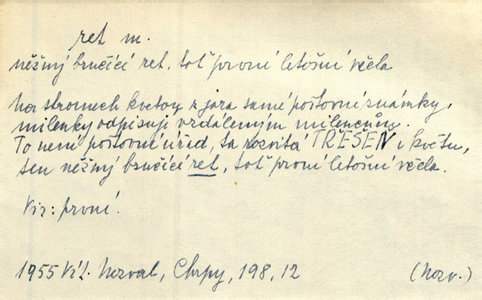 ret m.
něžný bzučící ret, toť první letošní včela
Na stromech kvetou z jara samé poštovní známky,
milenky odpisují vzdáleným milencům.
To není poštovní úřad, ta rozvitá TŘEŠEŇ v květu,
ten něžný bzučící ret, toť první letošní včela.
Viz: první.
1955 Vít. Nezval, Chrpy, 198, 12 (Nezv.)